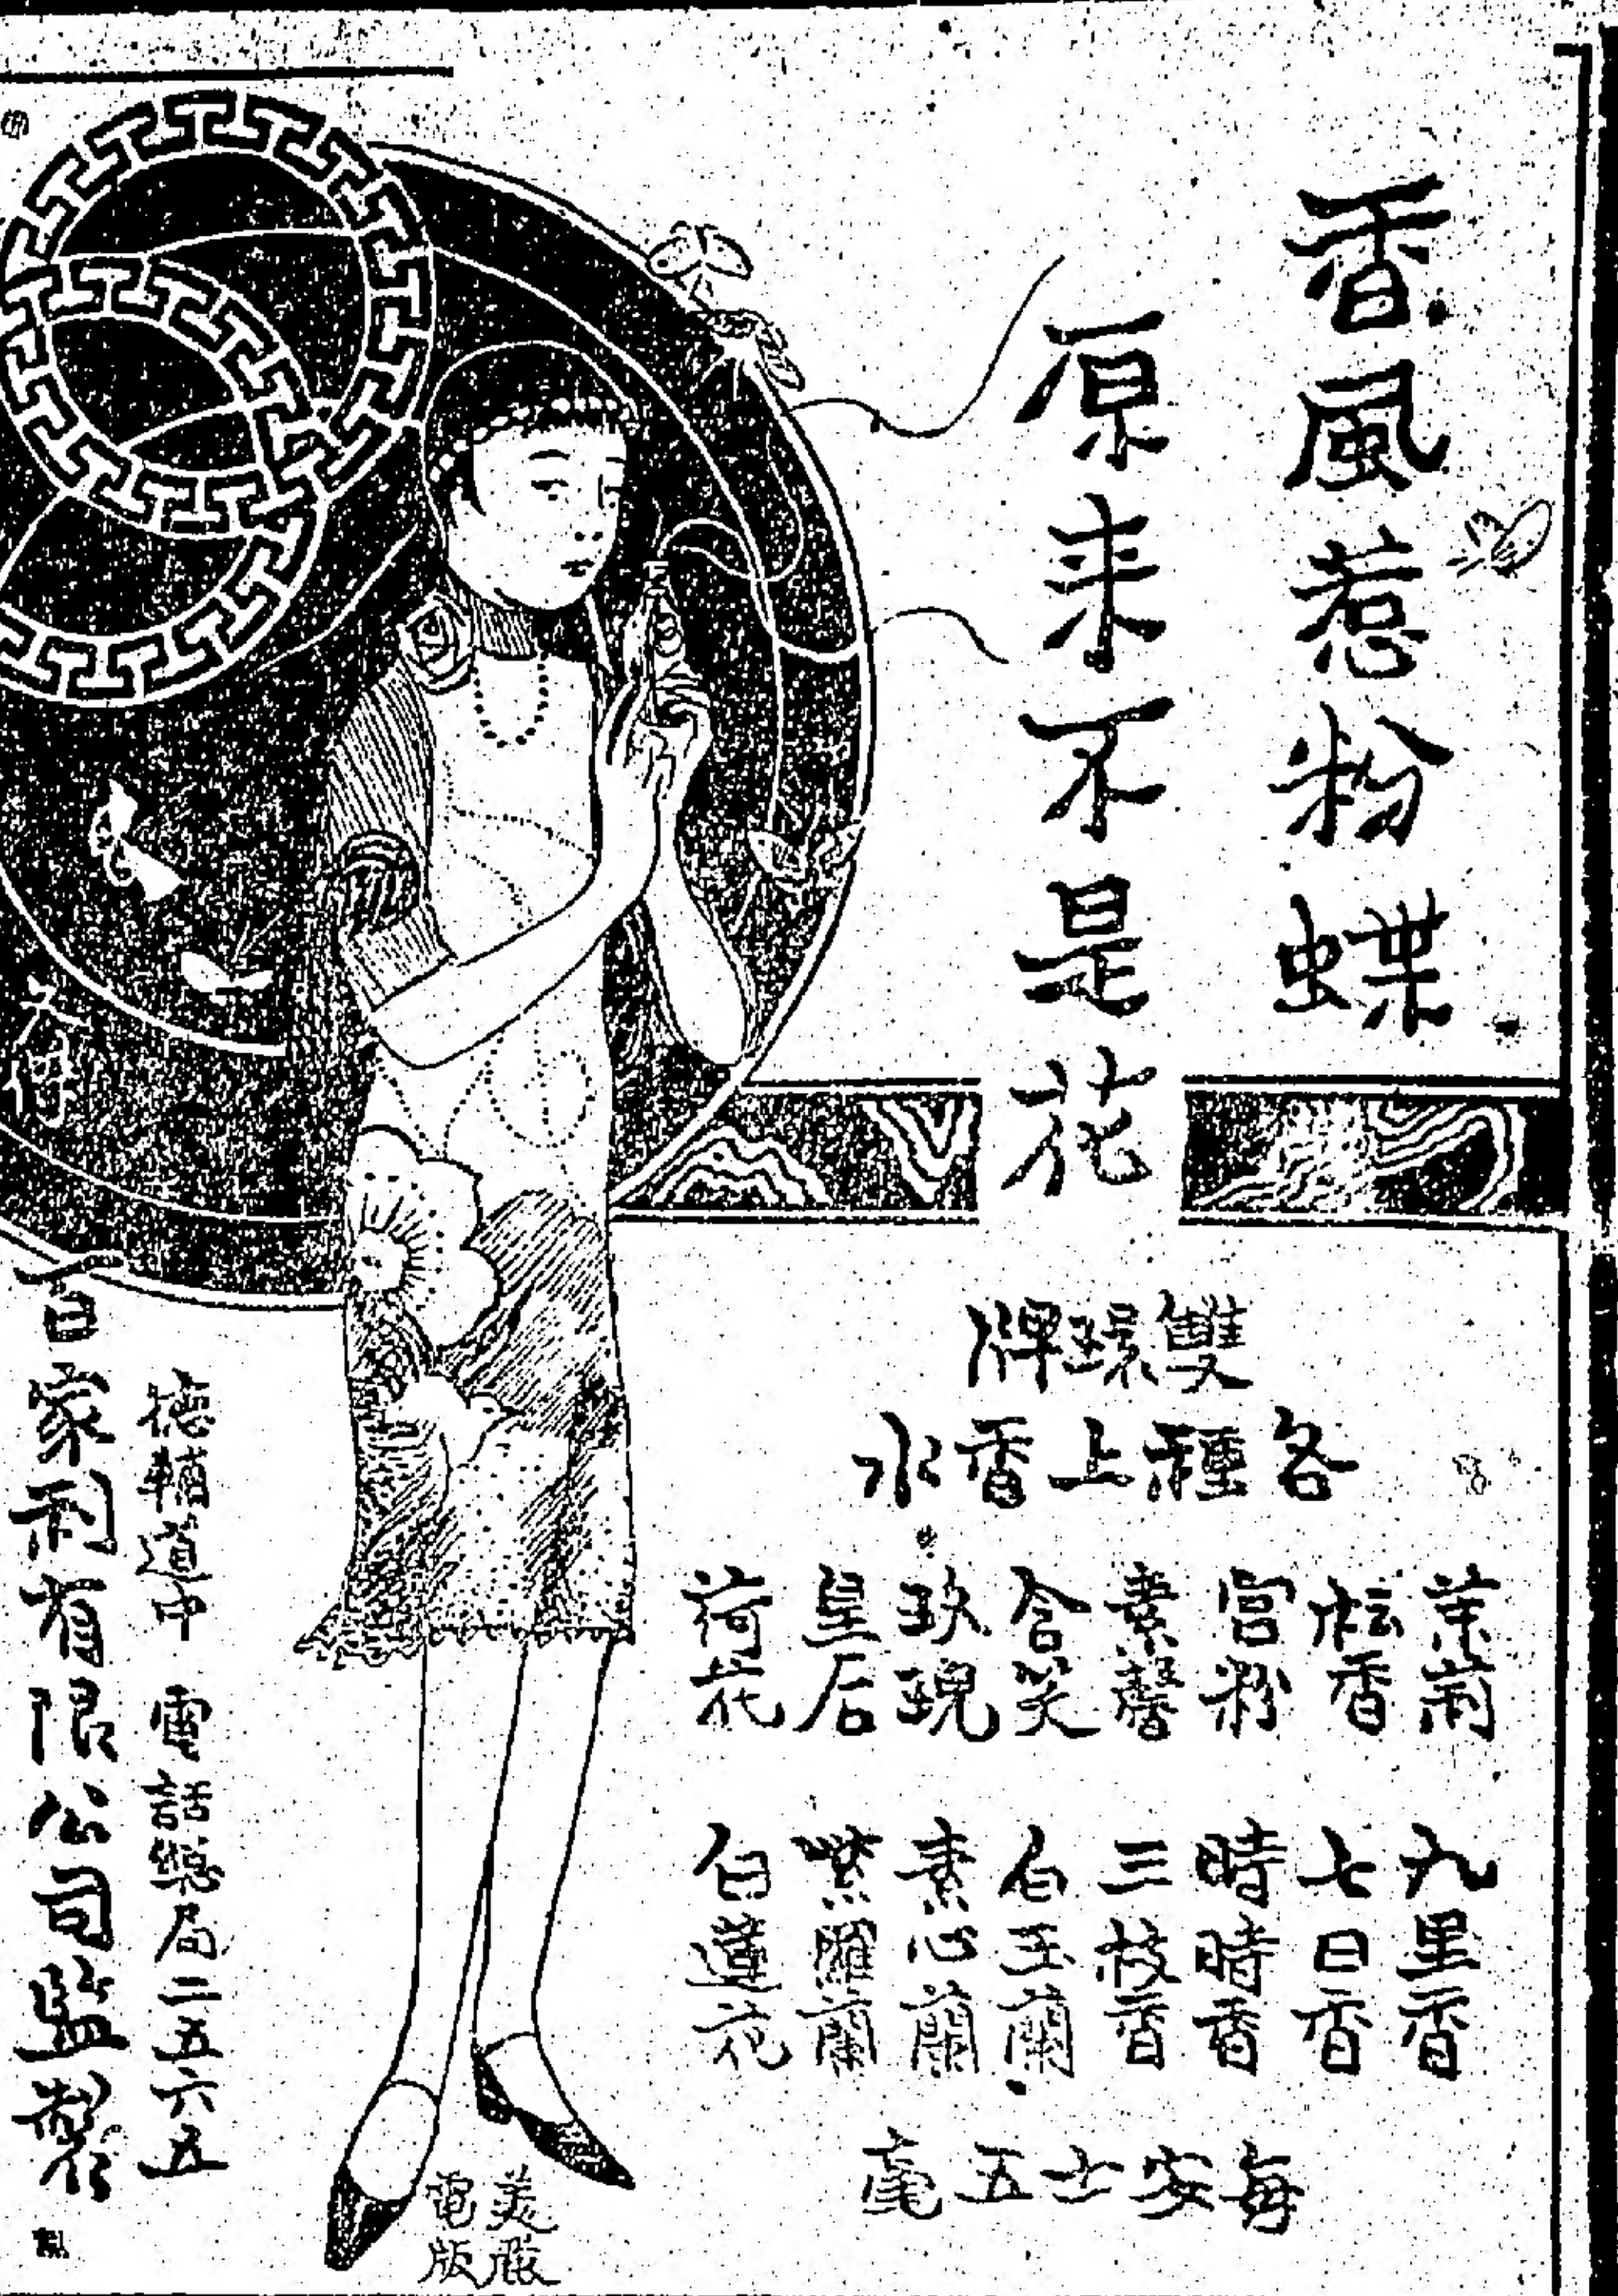 香風惹粉蝶
原来不是花
雙環牌
各種上香水
茉莉
枟香
宮粉
素馨
含笑
玖瑰
皇后
荷花
九里香
七日香
時時香
三枝香
白玉蘭
素心蘭
紫羅蘭
白蓮花
每安士五毫
德輔道中 電話總局二五六五
百家利有限公司監製
電版